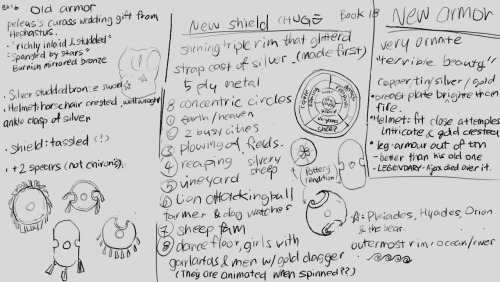 Bk16
Old armor
peleus's cuirass wedding gift from
Hephastus.
"richly inlaid & studded"
"spangled by stars"
Burnish mirrored bronze
• Silver studded bronze sword
• Helmet: horse hair crested, well wrought
ankle clasp of silver
• shield: tassled (?)
• + 2 spears (not chiron's).
New shield (HUGE)
Book 18
shining triple rim that glitterd
strap cast of silver. (made first)
5 ply metal
8 concentric circles
① earth/heaven
② 2 busy cities
③ plowing of fields.
④ reaping silvery
sheep
⑤ vineyard
⑥ Lion attacking bull
farmer & dog watches
⑦ sheep farm
⑧ dance floor, girls with
garlantas & men w/ gold dagger
(They are animated when spinned??)
sheep
Pottery
rendition
New armor
very ornate
"terrible beauty"
copper, tin, silver/gold
• breast plate brighter than
fire.
• Helmet: fit close a temples
intricate & gold crested
• leg-armour out of tin
- better than his old one
- LEGENDARY - Ajax died over it.
☆: Pleiades, Hyades, Orion
& the bear
outermost rim: ocean/river